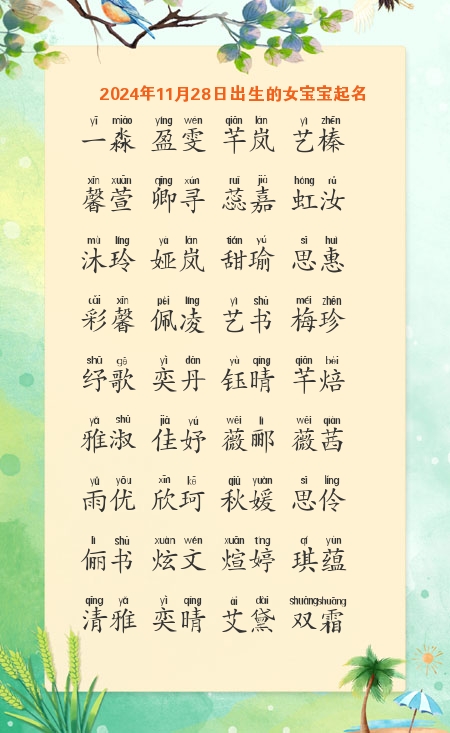 2024年11月28日出生的女宝宝起名
yī miǎo yíng wén qiān lán yì zhēn
一淼 盈雯 芊岚 艺榛
xīn xuān qīng xún ruǐ jiā hóng rǔ
馨萱 卿寻 蕊嘉 虹汝
mù líng yà lán tián yú sī huì
沐玲 娅岚 甜瑜 思惠
cǎi xīn pèi líng yì shū méi zhēn
彩馨 佩凌 艺书 梅珍
shū gē yì dān yù qíng qiān bèi
纾歌 奕丹 钰晴 芊焙
yǎ shū jiā yú wēi lì wēi qiàn
雅淑 佳妤 薇郦 薇茜
yǔ yōu xīn kē qiū yuán sī líng
雨优 欣珂 秋媛 思伶
lì shū xuàn wén xuān tíng qí yùn
俪书 炫文 煊婷 琪蕴
qīng yǎ yì qíng ài dài shuāng shuāng
清雅 奕晴 艾黛 双霜